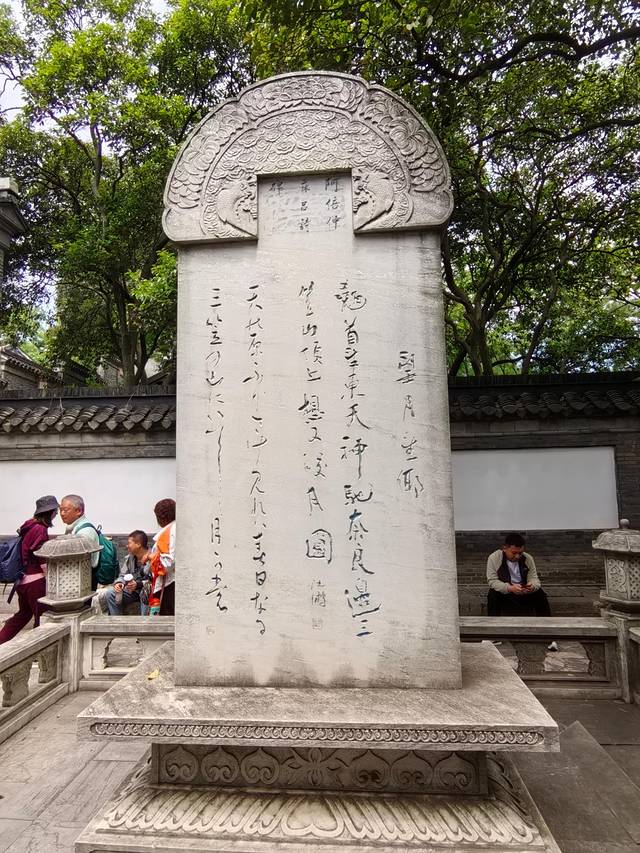 阿倍仲
麻呂詩
碑
望月望鄉
翹首望東天神馳奈良邊三
笠山頂上想又皎月圓
沈鵬
天の原ふりさけ見れば春日なる
三笠の山にいでし月